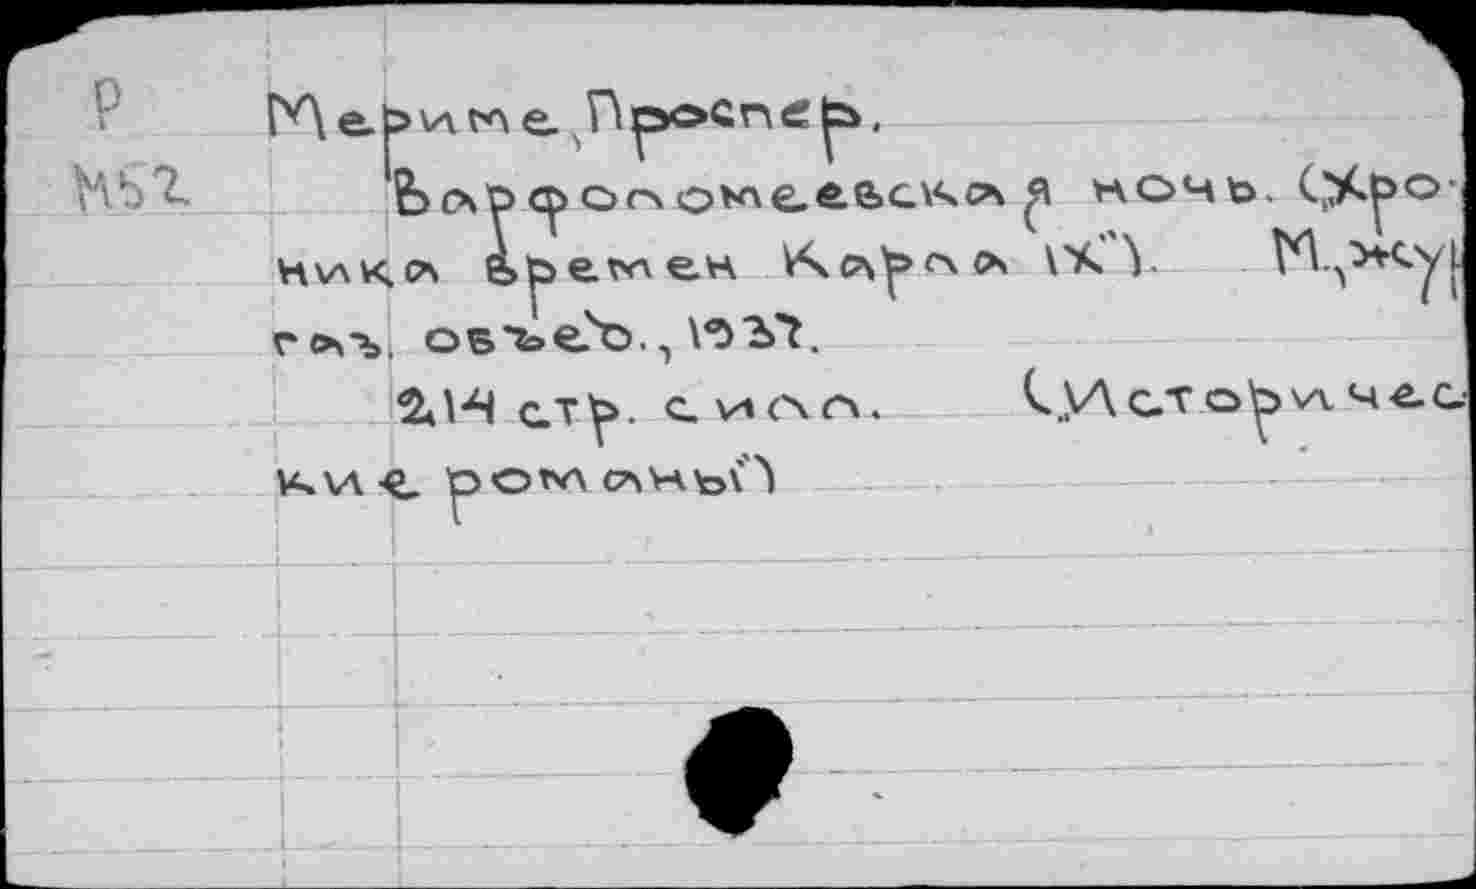 Р Мериме, Проспер.
М52 Варфоломеевская ночь. („Хро-
ника времен Карла IX"). М., Жург
газ. объед., 1937.
214 стр. с илл. („Историчес
кие романы")